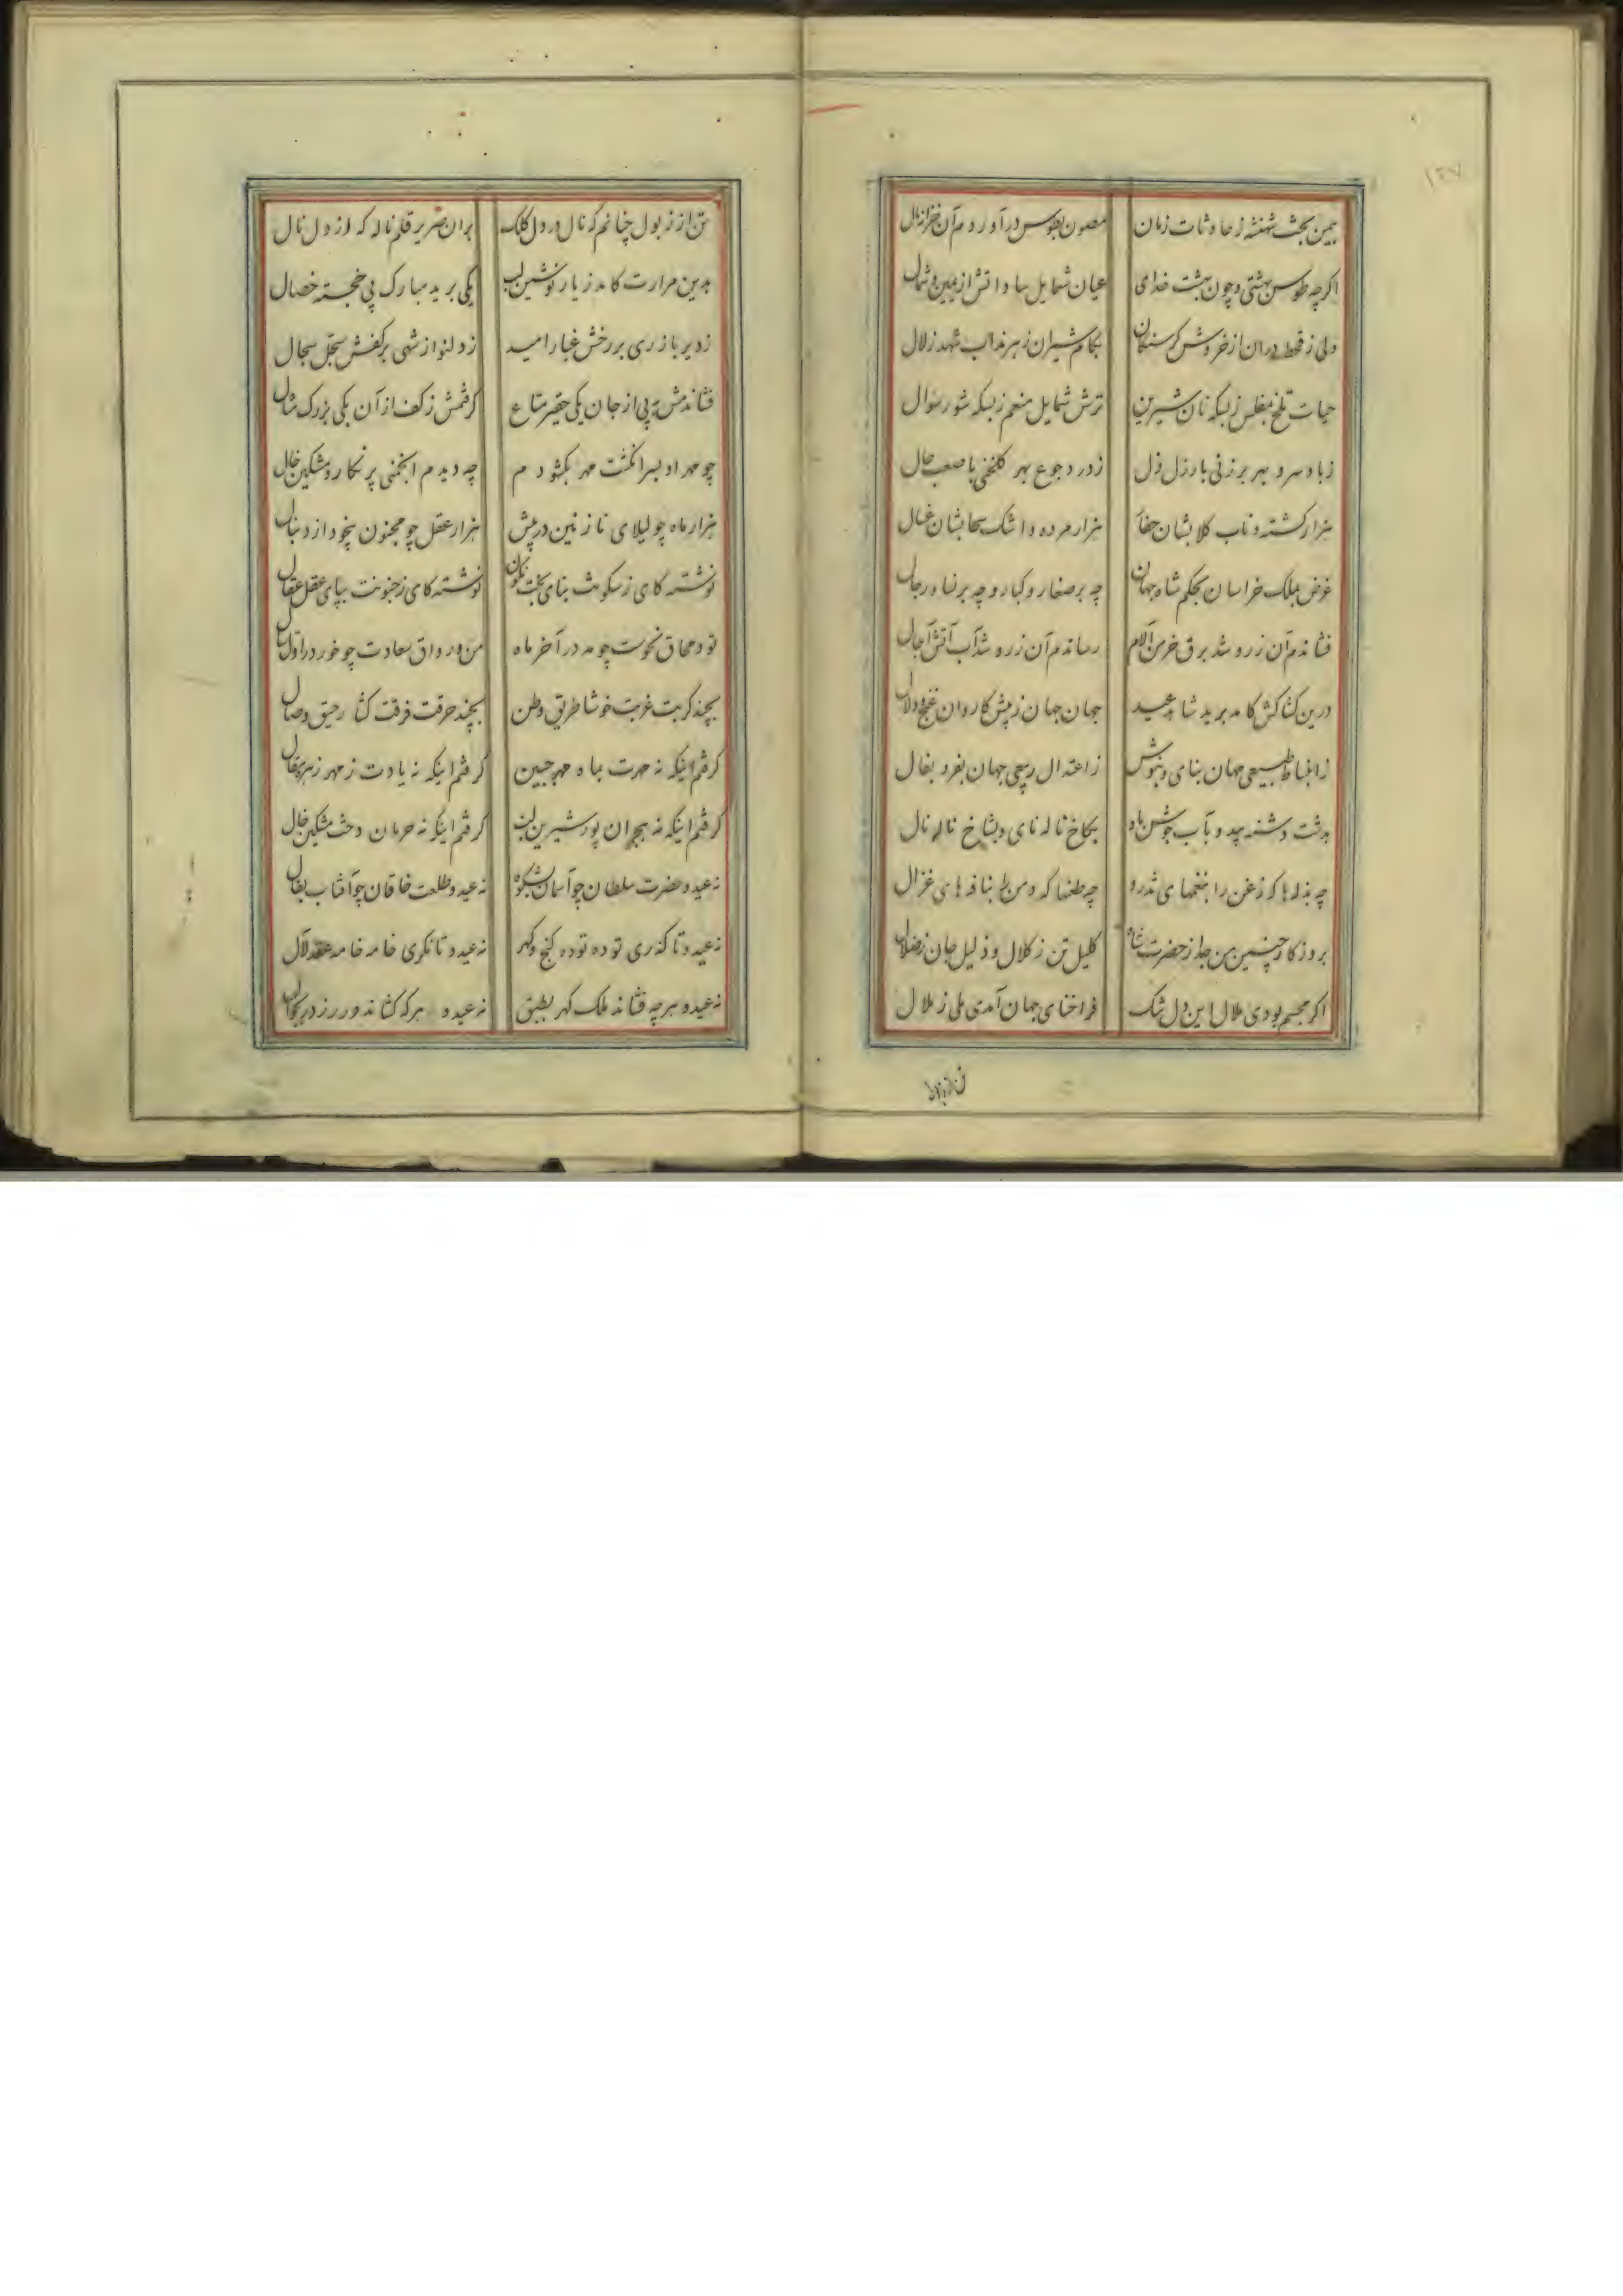 ۱۲۷
بیمن بخت شهنشه ز حادثات زمان مصون بطوس درآوردم آن خزانه مال
اکرچه طوس بهشتی و چون بهشت خدای عیان شمایل سادانش از یمین و شمال
ولی ز قحط در ان از خروش کرسنکان بکام شیران زهر مذاب شهد زلال
حیات تلخ بمفلس ز بسکه نان شیرین ترش شمایل منعم ز بسکه شور سؤال
زباد سرد بهر برزنی بارزل ذل ز درد جوع بهر کلخنی باصعب حال
هزار کشته و ناب کلابشان هزار مرده و اشک سحابشان غسال
غرض بملک خراسان بحکم شاه جهان چه بر صغار و کبار و چه بر نسا و رجال
فشاندم آن زر و شد برق خرمن آلام رساندم آن زر و شد آب آتش آجال
درین کشاکش کامد برید شاهد عید جهان جهان ز پیش کاروان غنج و دلال
ز انبساط طبیعی جهان بنای و بنوش ز اعتدال ربیعی جهان بفر و بفال
بدشت دشنه بید و بآب جوشن باد بکاخ ناله نای و بشاخ ناله نال
چه بذله ها که زغن را بنغمهای تذرو چه طعنها که دمن را بنافه های غزال
بروزکار چنین من جدا ز حضرت شاه کلیل تن ز کلال و ذلیل جان ز ضلال
اکر مجسم بودی ملال این دل تنک فراخنای جهان آمدی ملی ز ملال
تن از ز بول چنانم که نال در دل کلک بران صریر قلم ناله که از دل نال
بدین مرارت کامد ز یار نوشین لب یکی برید مبارک پی خجسته خصال
زدیر بازری بر رخش غبار امید ز دلنواز شهی برکفش سجل سجال
فشاندمش پی از جان یکی حقیر متاع کرفتمش ز کف از آن یکی بزرک مثال
چو مهر او بسر انکشت مهر بکشودم چه دیدم انجمنی پر نکار و مشکین خال
هزار ماه چو لیلای نازنین در پیش هزار عقل چو مجنون بیخود از دنبال
نوشته کای ز سکونت بنای بخت نکون نوشته کای ز جنونت بپای عقل عقال
تو در محاق نحوست چو مه در آخر ماه من در رواق سعادت چو خور در اول سال
بچند کربت غربت خوشا طریق وطن بچند حرقت فرقت کشا رحیق وصال
کرفتم اینکه نه حسرت بماه مهر جبین کرفتم اینکه نه یادت ز مهر زهره مقال
کرفتم اینکه نه هجران پور شیرین لب کرفتم اینکه نه حرمان دخت مشکین خال
نه عید و حضرت سلطان چو آسمان شکوه نه عید و طلعت خاقان چو آفتاب بفال
نه عید و تا کذری توده توده کنج و کهر نه عید و تا نکری خامه خامه عقد لآل
نه عید و هرچه فشاند ملک کهر بطبق نه عید و هرکه کشاند ورر زر بجوال
تن از زبول